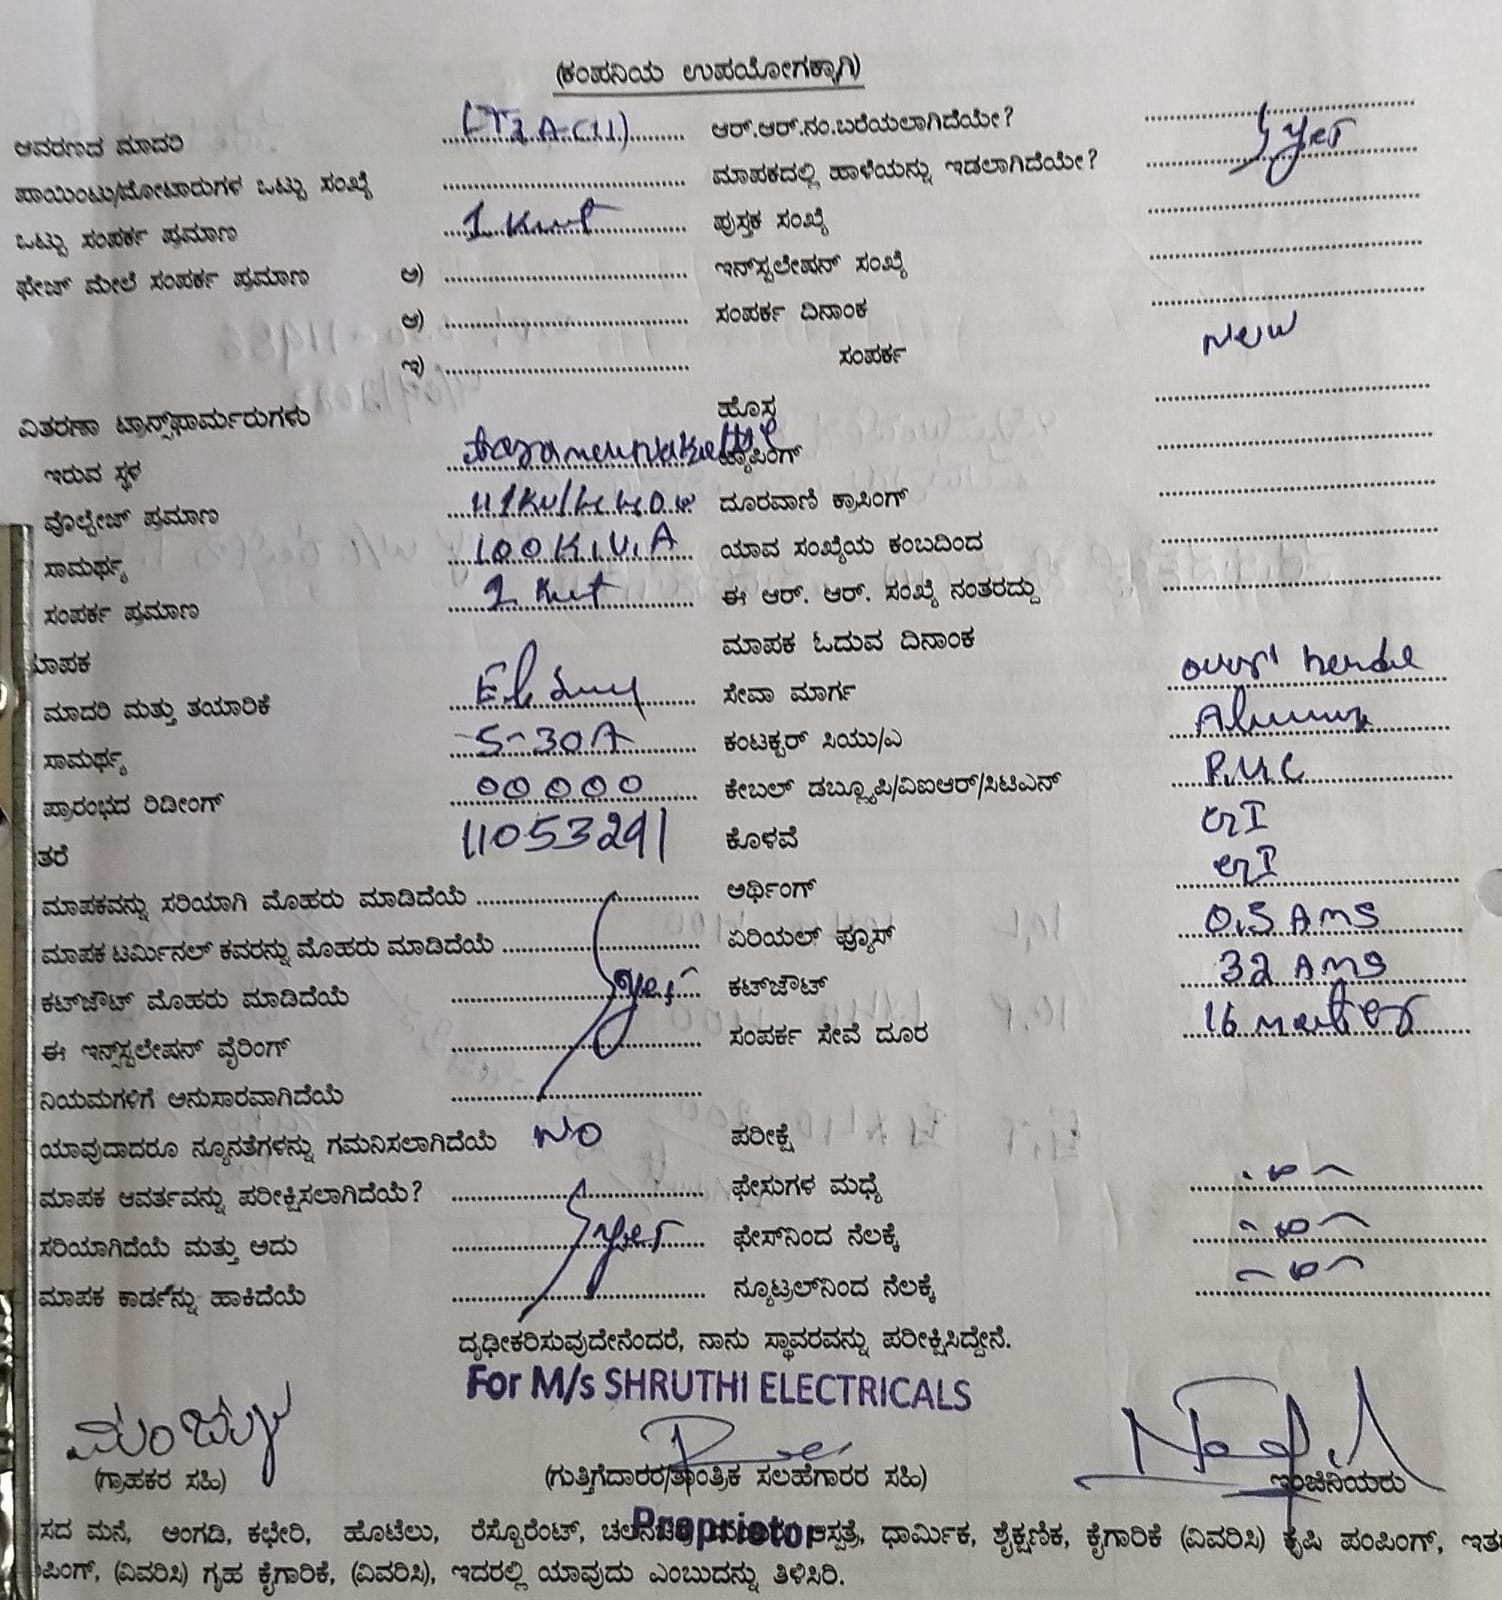 (ಕಂಪನಿಯ ಉಪಯೋಗಕ್ಕಾಗಿ)
ಆವರಣದ ಮಾದರಿ ಆರ್.ಆರ್.ನಂ.ಬರೆಯಲಾಗಿದೆಯೇ?
ಪಾಯಿಂಟು/ಮೋಟಾರುಗಳ ಒಟ್ಟು ಸಂಖ್ಯೆ ಮಾಪಕದಲ್ಲಿ ಹಾಳೆಯನ್ನು ಇಡಲಾಗಿದೆಯೇ? yes
ಒಟ್ಟು ಸಂಪರ್ಕ ಪ್ರಮಾಣ 1 Kwt ಪುಸ್ತಕ ಸಂಖ್ಯೆ
ಫೇಜ್ ಮೇಲೆ ಸಂಪರ್ಕ ಪ್ರಮಾಣ ಅ) ಇನ್‌ಸ್ಟಲೇಷನ್ ಸಂಖ್ಯೆ
ಆ) ಸಂಪರ್ಕ ದಿನಾಂಕ
ಇ) ಸಂಪರ್ಕ New
ವಿತರಣಾ ಟ್ರಾನ್ಸ್‌ಫಾರ್ಮರುಗಳು ಹೊಸ
ಇರುವ ಸ್ಥಳ ಟ್ಯಾಪಿಂಗ್
ವೊಲ್ಟೇಜ್ ಪ್ರಮಾಣ ದೂರವಾಣಿ ಕ್ರಾಸಿಂಗ್
ಸಾಮರ್ಥ್ಯ 100 K.V.A ಯಾವ ಸಂಖ್ಯೆಯ ಕಂಬದಿಂದ
ಸಂಪರ್ಕ ಪ್ರಮಾಣ 1 Kwt ಈ ಆರ್. ಆರ್. ಸಂಖ್ಯೆ ನಂತರದ್ದು
ಮಾಪಕ ಮಾಪಕ ಓದುವ ದಿನಾಂಕ
ಮಾದರಿ ಮತ್ತು ತಯಾರಿಕೆ ಸೇವಾ ಮಾರ್ಗ
ಸಾಮರ್ಥ್ಯ 5-30A ಕಂಟಕ್ಟರ್ ಸಿಯು/ಎ
ಪ್ರಾರಂಭದ ರಿಡೀಂಗ್ 00000 ಕೇಬಲ್ ಡಬ್ಲ್ಯೂಪಿ/ವಿಐಆರ್/ಸಿಟಿಎನ್ P.V.C
ತರೆ 11053291 ಕೊಳವೆ GI
ಮಾಪಕವನ್ನು ಸರಿಯಾಗಿ ಮೊಹರು ಮಾಡಿದೆಯೆ ಅರ್ಥಿಂಗ್ GI
ಮಾಪಕ ಟರ್ಮಿನಲ್ ಕವರನ್ನು ಮೊಹರು ಮಾಡಿದೆಯೆ ಏರಿಯಲ್ ಫ್ಯೂಸ್ 0.5 AMS
ಕಟ್‌ಜೌಟ್ ಮೊಹರು ಮಾಡಿದೆಯೆ yes ಕಟ್‌ಜೌಟ್ 32 AMS
ಈ ಇನ್ಸ್‌ಟಲೇಷನ್ ವೈರಿಂಗ್ ಸಂಪರ್ಕ ಸೇವೆ ದೂರ 16
ನಿಯಮಗಳಿಗೆ ಅನುಸಾರವಾಗಿದೆಯೆ
ಯಾವುದಾದರೂ ನ್ಯೂನತೆಗಳನ್ನು ಗಮನಿಸಲಾಗಿದೆಯೆ NO ಪರೀಕ್ಷೆ
ಮಾಪಕ ಆವರ್ತವನ್ನು ಪರೀಕ್ಷಿಸಲಾಗಿದೆಯೆ? ಫೇಸುಗಳ ಮಧ್ಯೆ
ಸರಿಯಾಗಿದೆಯೆ ಮತ್ತು ಅದು yes ಫೇಸ್‌ನಿಂದ ನೆಲಕ್ಕೆ
ಮಾಪಕ ಕಾರ್ಡನ್ನು ಹಾಕಿದೆಯೆ ನ್ಯೂಟ್ರಲ್‌ನಿಂದ ನೆಲಕ್ಕೆ
ದೃಢೀಕರಿಸುವುದೇನೆಂದರೆ, ನಾನು ಸ್ಥಾವರವನ್ನು ಪರೀಕ್ಷಿಸಿದ್ದೇನೆ.
For M/s SHRUTHI ELECTRICALS
ಮಂಜು
(ಗ್ರಾಹಕರ ಸಹಿ) (ಗುತ್ತಿಗೆದಾರರ/ತಾಂತ್ರಿಕ ಸಲಹೆಗಾರರ ಸಹಿ) ಇಂಜಿನಿಯರು
Proprietor
ಸದ ಮನೆ, ಅಂಗಡಿ, ಕಛೇರಿ, ಹೊಟೆಲು, ರೆಸ್ಟೊರೆಂಟ್, ಆಸ್ಪತ್ರೆ, ಧಾರ್ಮಿಕ, ಶೈಕ್ಷಣಿಕ, ಕೈಗಾರಿಕೆ (ವಿವರಿಸಿ) ಕೃಷಿ ಪಂಪಿಂಗ್, ಇತರ
ಪಿಂಗ್, (ವಿವರಿಸಿ) ಗೃಹ ಕೈಗಾರಿಕೆ, (ವಿವರಿಸಿ), ಇದರಲ್ಲಿ ಯಾವುದು ಎಂಬುದನ್ನು ತಿಳಿಸಿರಿ.